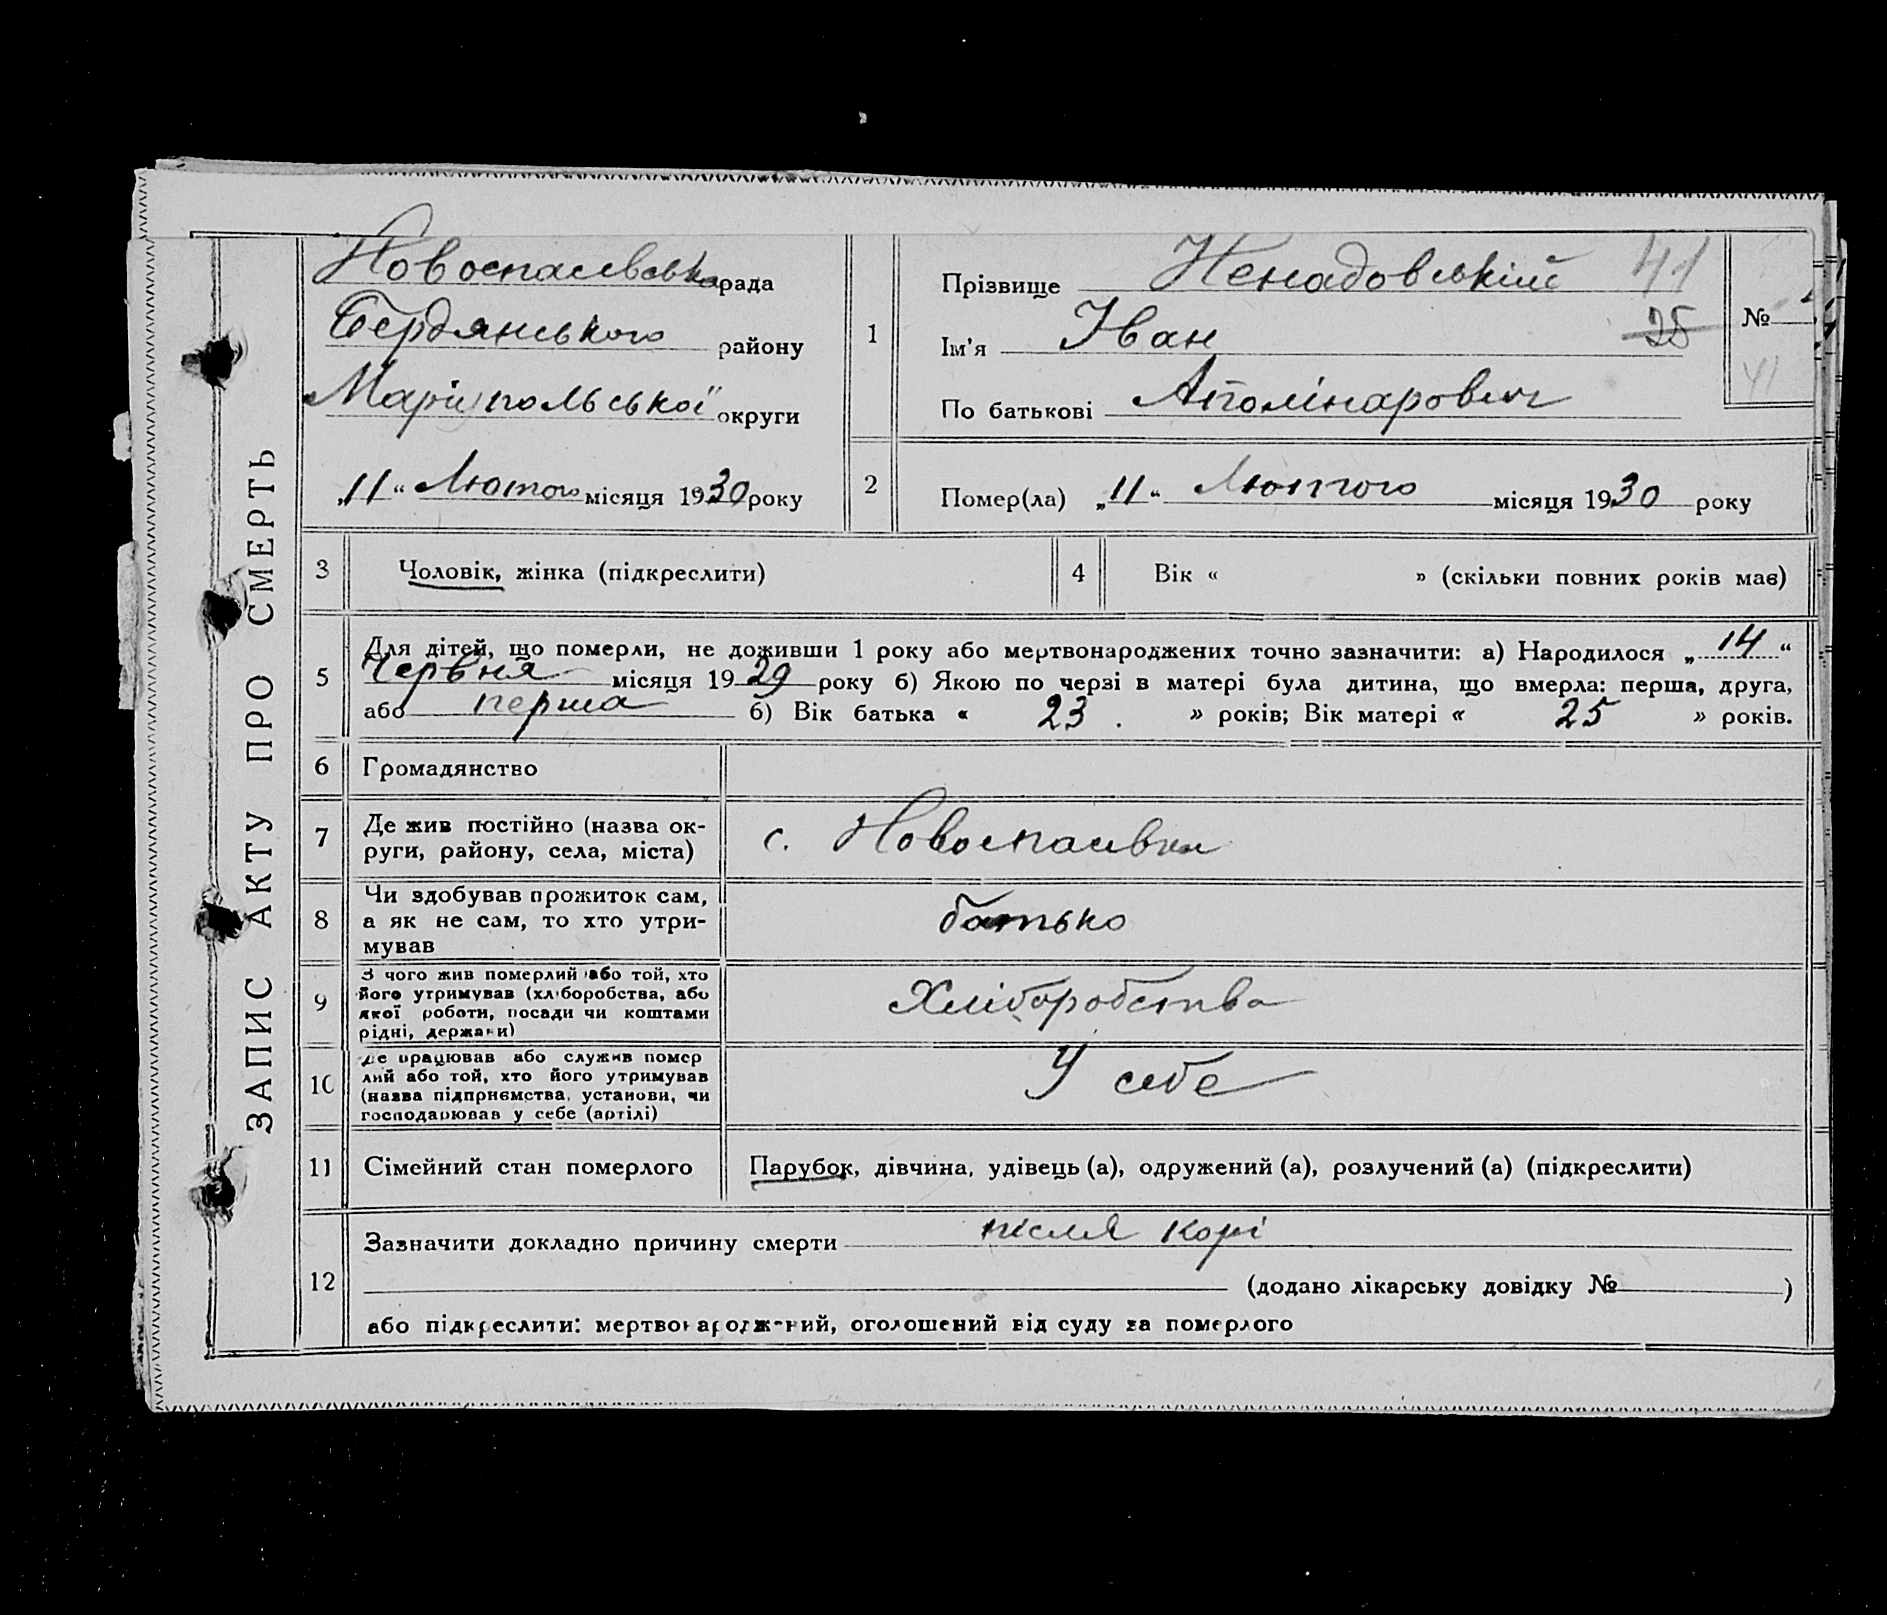 ЗАПИС АКТУ ПРО СМЕРТЬ
Новоспасівська рада
Бердянського району
Маріупольської округи
„11“ Лютого місяця 1930 року
1
Прізвище Ненадовський 41
Ім'я Іван 25
По батькові Аполінарович
№
41
2
Помер(ла) „11“ Лютого місяця 1930 року
3 Чоловік, жінка (підкреслити)
4 Вік « » (скільки повних років має)
5 Для дітей, що померли, не доживши 1 року або мертвонароджених точно зазначити: а) Народилося „14“
Червня місяця 1929 року б) Якою по черзі в матері була дитина, що вмерла: перша, друга,
або перша б) Вік батька « 23 . » років; Вік матері « 25 » років.
6 Громадянство
7 Де жив постійно (назва ок-
руги, району, села, міста)
с. Новоспасівка
8 Чи здобував прожиток сам,
а як не сам, то хто утри-
мував
батько
9 З чого жив померлий або той, хто
його утримував (хліборобства, або
якої роботи, посади чи коштами
рідні, держави)
Хліборобства
10 Де працював або служив помер
лий або той, хто його утримував
(назва підприємства, установи, чи
господарював у себе (артілі)
У себе
11 Сімейний стан померлого
Парубок, дівчина, удівець (а), одружений (а), розлучений (а) (підкреслити)
12 Зазначити докладно причину смерти після корі
(додано лікарську довідку № )
або підкреслити: мертвонароджений, оголошений від суду за померлого